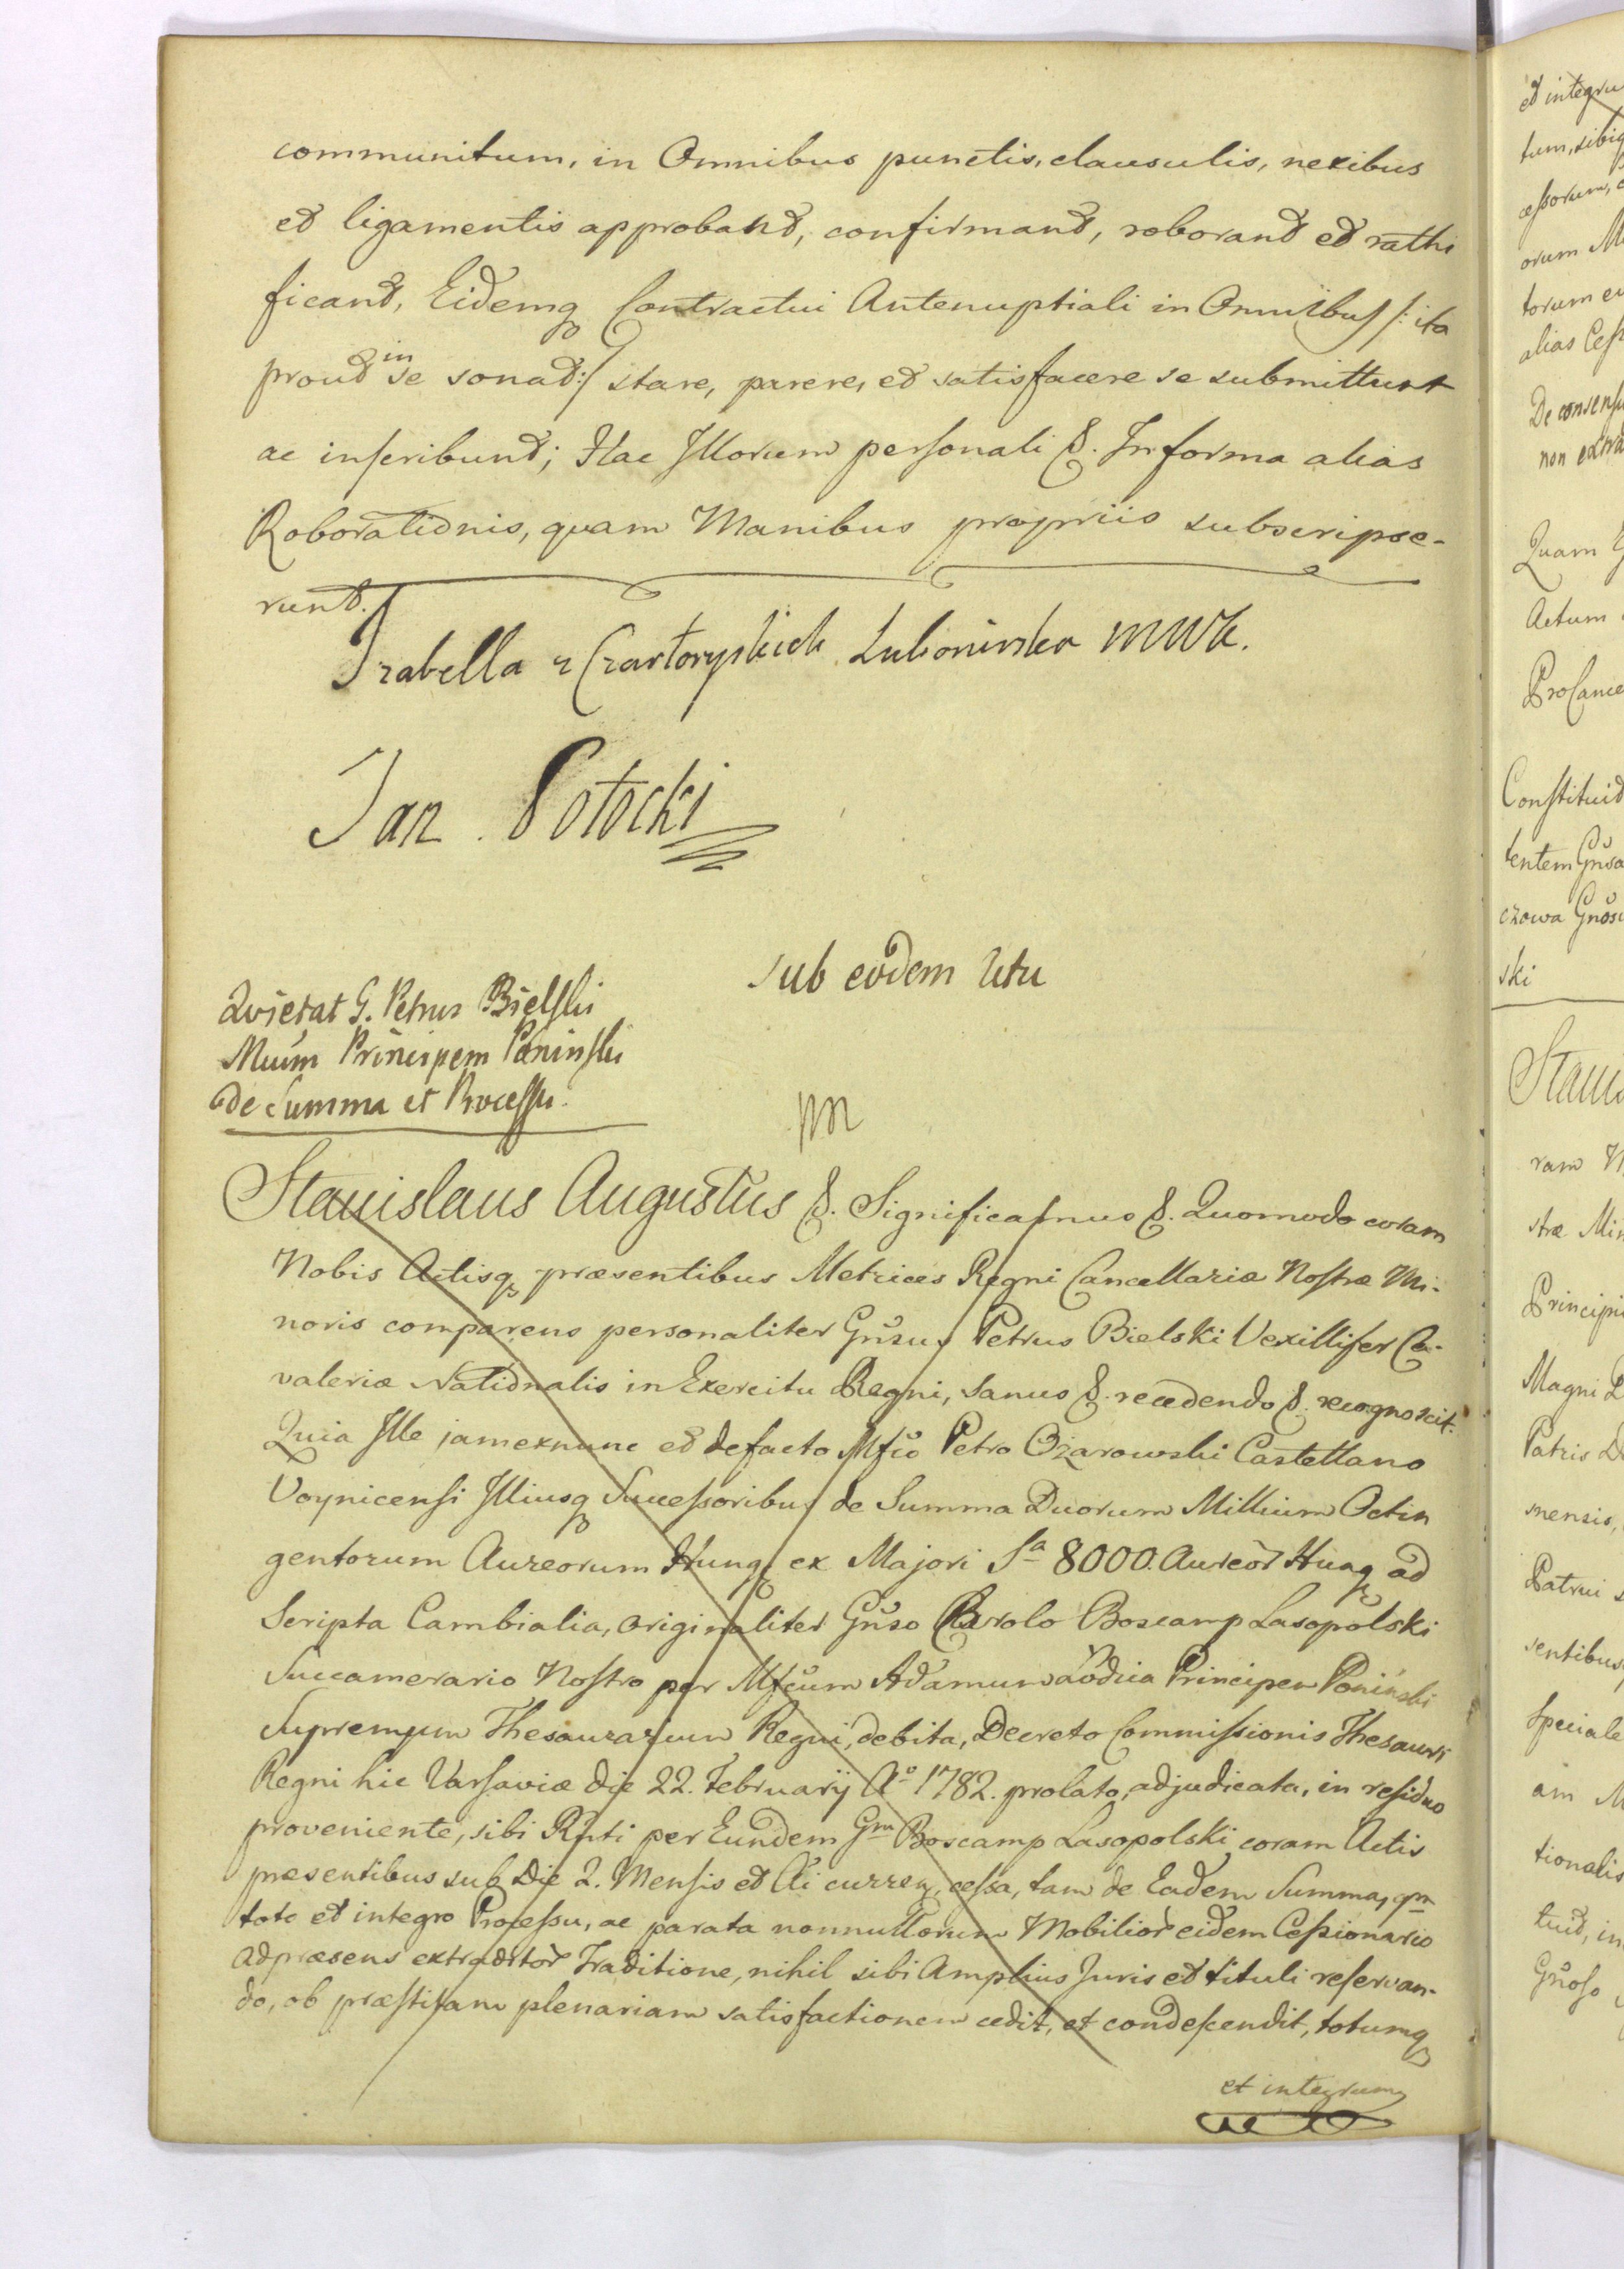 communitum, in Omnibus punctis, clausulis, nexibus
et ligamentis approbant, confirmant, roborant et rathi
ficant, Eidemq Contractui Antenuptiali in Omnibus /: ita
prout in se sonat :/ stare, parere, et satisfacere se submittunt
ac inscribunt; Hac Illorum personali &. In forma alias
Roborationis, quam Manibus propriis subscripse-
runt.
Izabella z Czartoryskich Lubomirska MWK.
Jan Potocki
sub eodem Actu
Quietat G. Petrus Bielski
Mcum Principem Poninski
de Summa et Processu.
Stanislaus Augustus &. Significamus &. Quomodo coram
Nobis Actisq praesentibus Metrices Regni Cancellariæ Nostræ Mi-
noris comparens personaliter Gnsus Petrus Bielski Vexillifer Ca-
valeriæ Nationalis in Exercitu Regni, sanus &. recedendo &. recognoscit.
Quia Ille jam ex nunc et de facto Mfco Petro Ożarowski Castellano
Voynicensi Illiusq Successoribus de Summa Duorum Millium Octin
gentorum Aureorum Hung ex Majori Sa 8000. Aureor Hung ad
Scripta Cambialia, originaliter Gnso Carolo Boscamp Lasopolski
Succamerario Nostro per Mfcum Adamum Łodzia Principem Poninski
Supremum Thesaurarium Regni, debita, Decreto Commissionis Thesauri
Regni hic Varsaviæ die 22. Februarij Ao 1782. prolato, adjudicata, in residuo
proveniente, sibi Rnti per Eundem Gm Boscamp Lasopolski coram Actis
præsentibus sub Die 2. Mensis et Ai curren, cessa, tam de Eadem Summa, qm
toto et integro Processu, ac parata nonnullorum Mobilior eidem Cessionario
ad præsens extraditor Traditione, nihil sibi Amplius Juris et tituli reservan-
do, ob præstitam plenariam satisfactionem cedit, et condescendit, totumq
et integrum
et integru
tum, sibiq
cessorum,
orum
torum
alias Cess
De consensu
non extra
Quam
Actum
ProCance
Constituit
tentem Gnsa
czowa Gnos
ski
Stani
ram
stræ Min
Principi
Magni
Patris
mensis,
Patrui
sentibus
speciale
am
tionalis
tuit, in
Gnoso